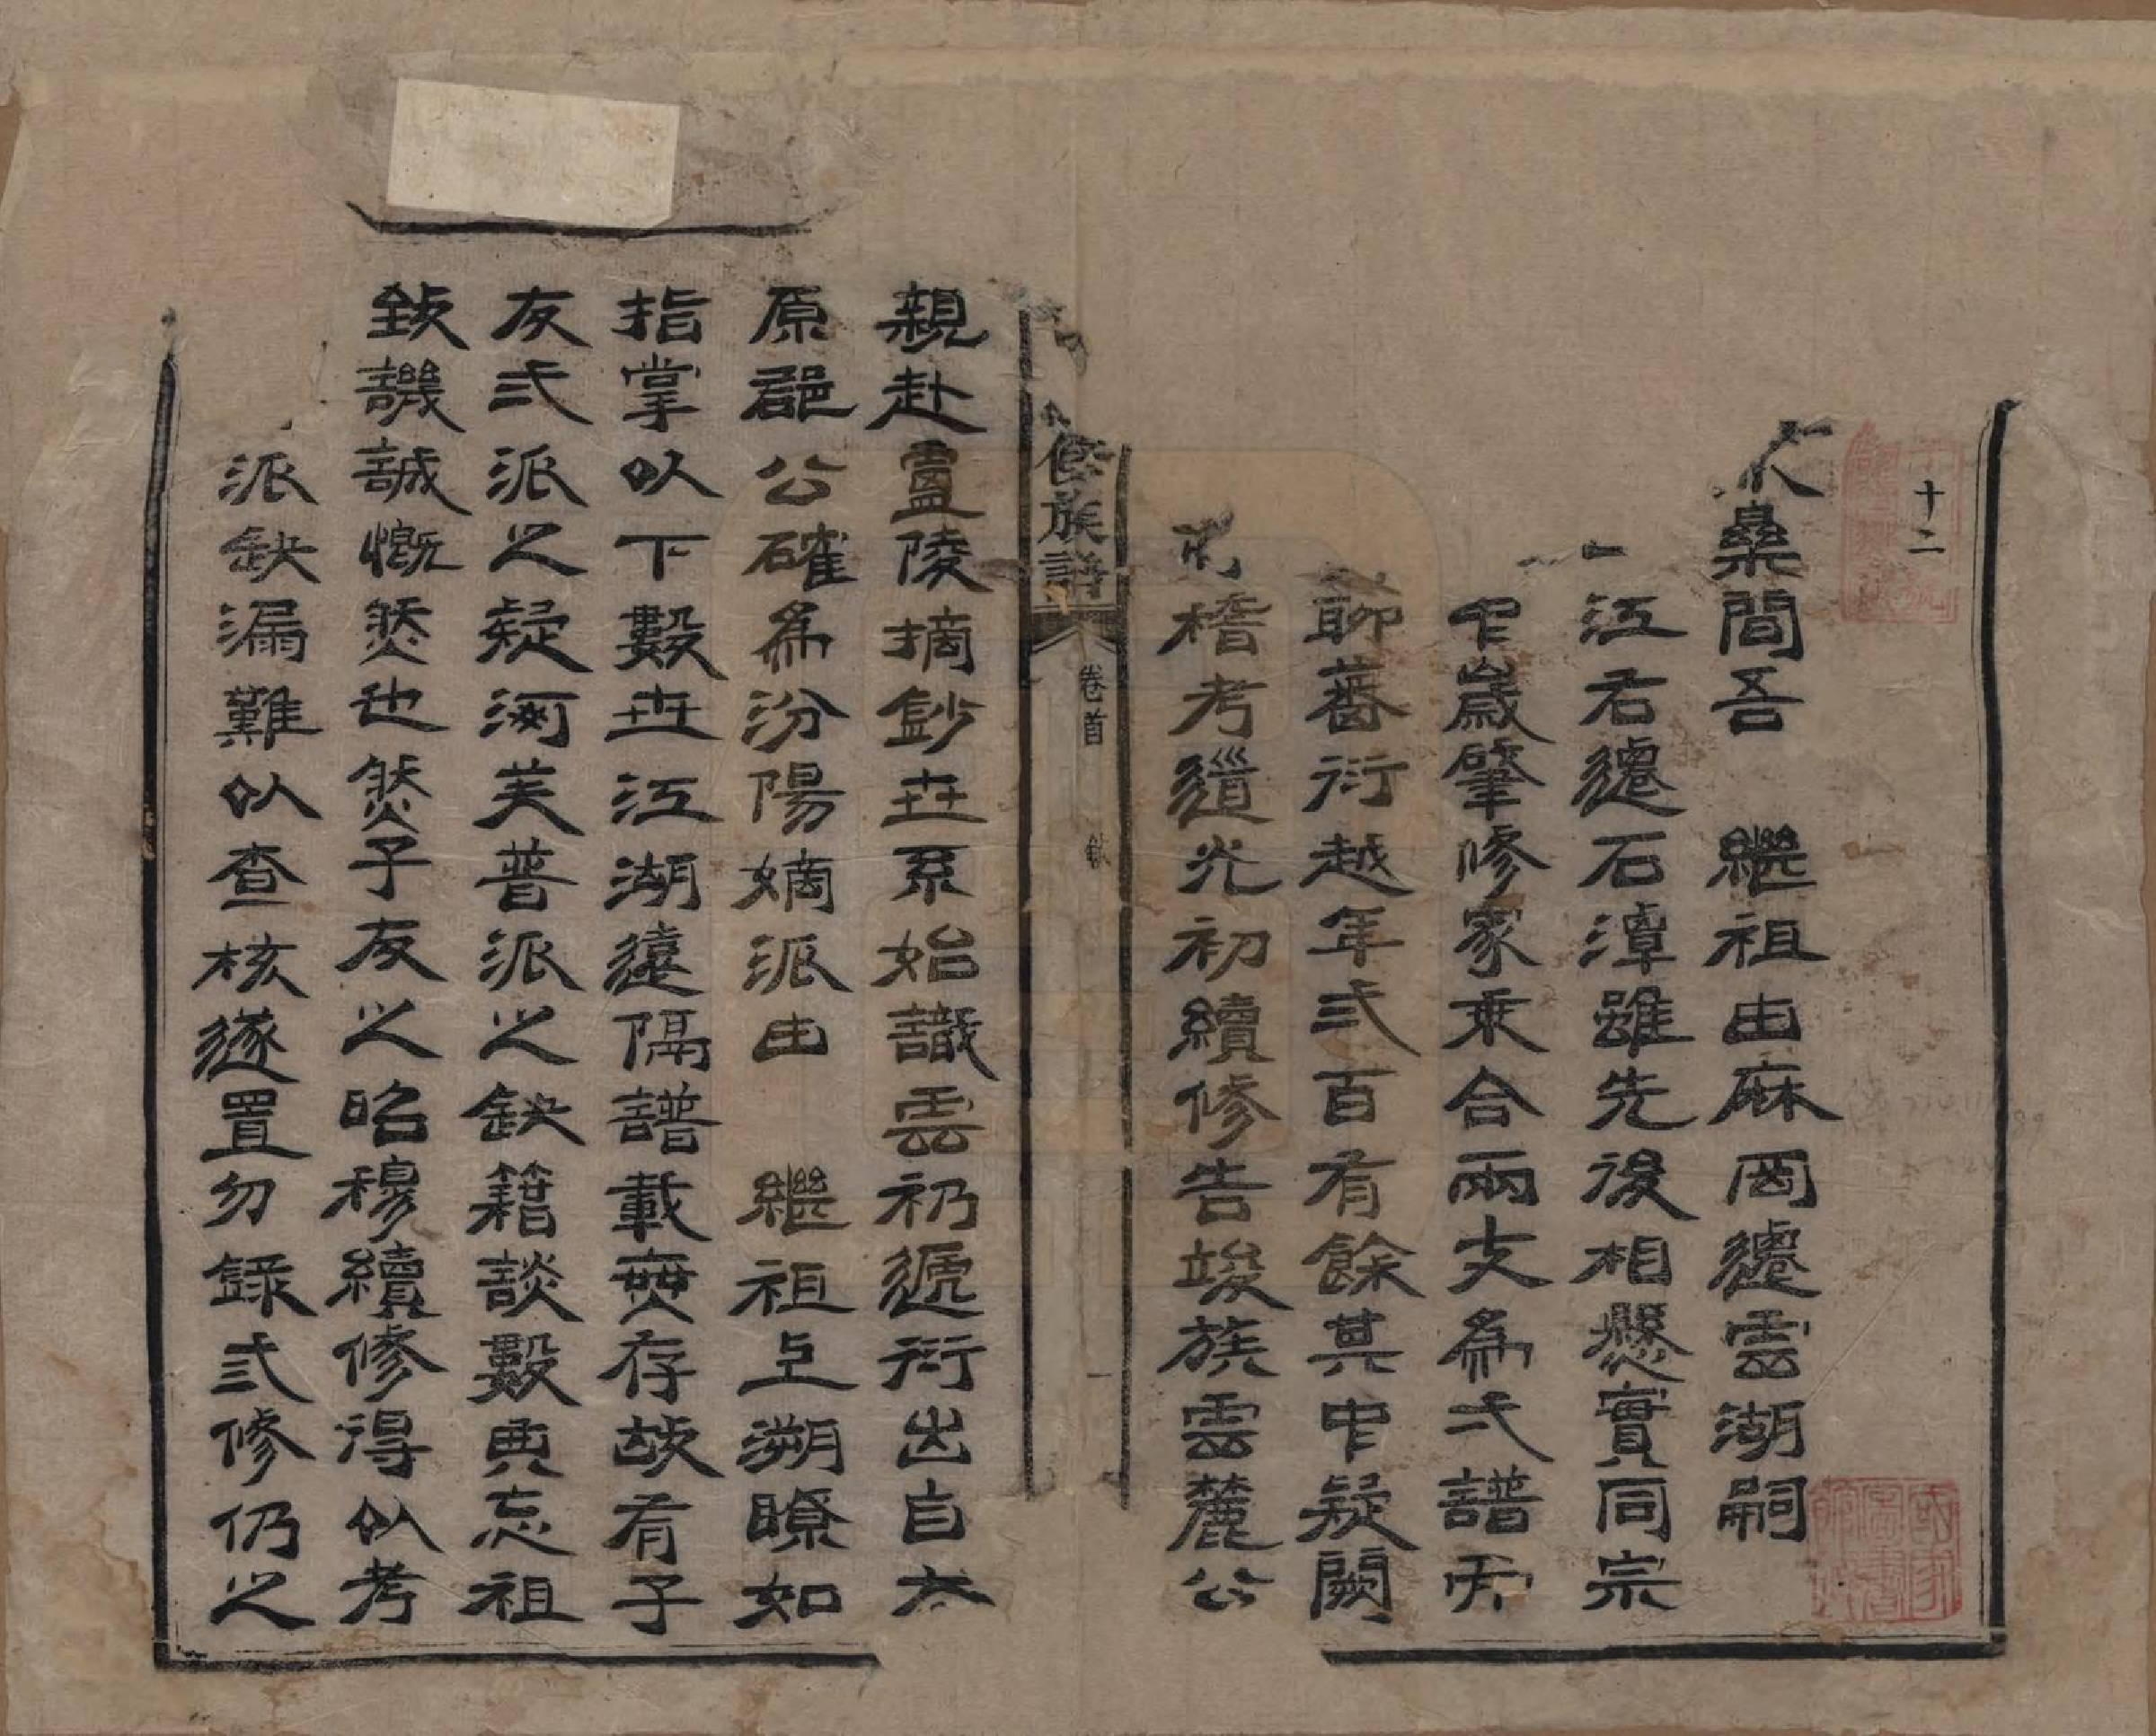 十二
桑間吾　繼祖由麻岡遷雲湖嗣
江君遷石潭雖先後相懸實同宗
歲肇修家乘合兩支為弌譜而
聊蕃衍越年弍百有餘其中疑闕
稽考道光初續修告竣族雲麓公
族譜 卷首 敘 一
親赴盧陵摘鈔世系始識雲礽遞衍出自太
原郡公確為汾陽嫡派由　繼祖上溯瞭如
指掌以下數世江湖遠隔譜載莫存故有子
友弍派之疑河芙普派之缺籍談數典忘祖
致譏誠慨然也然子友之昭穆續修得以考
派缺漏難以查核遂置勿錄弍修仍之